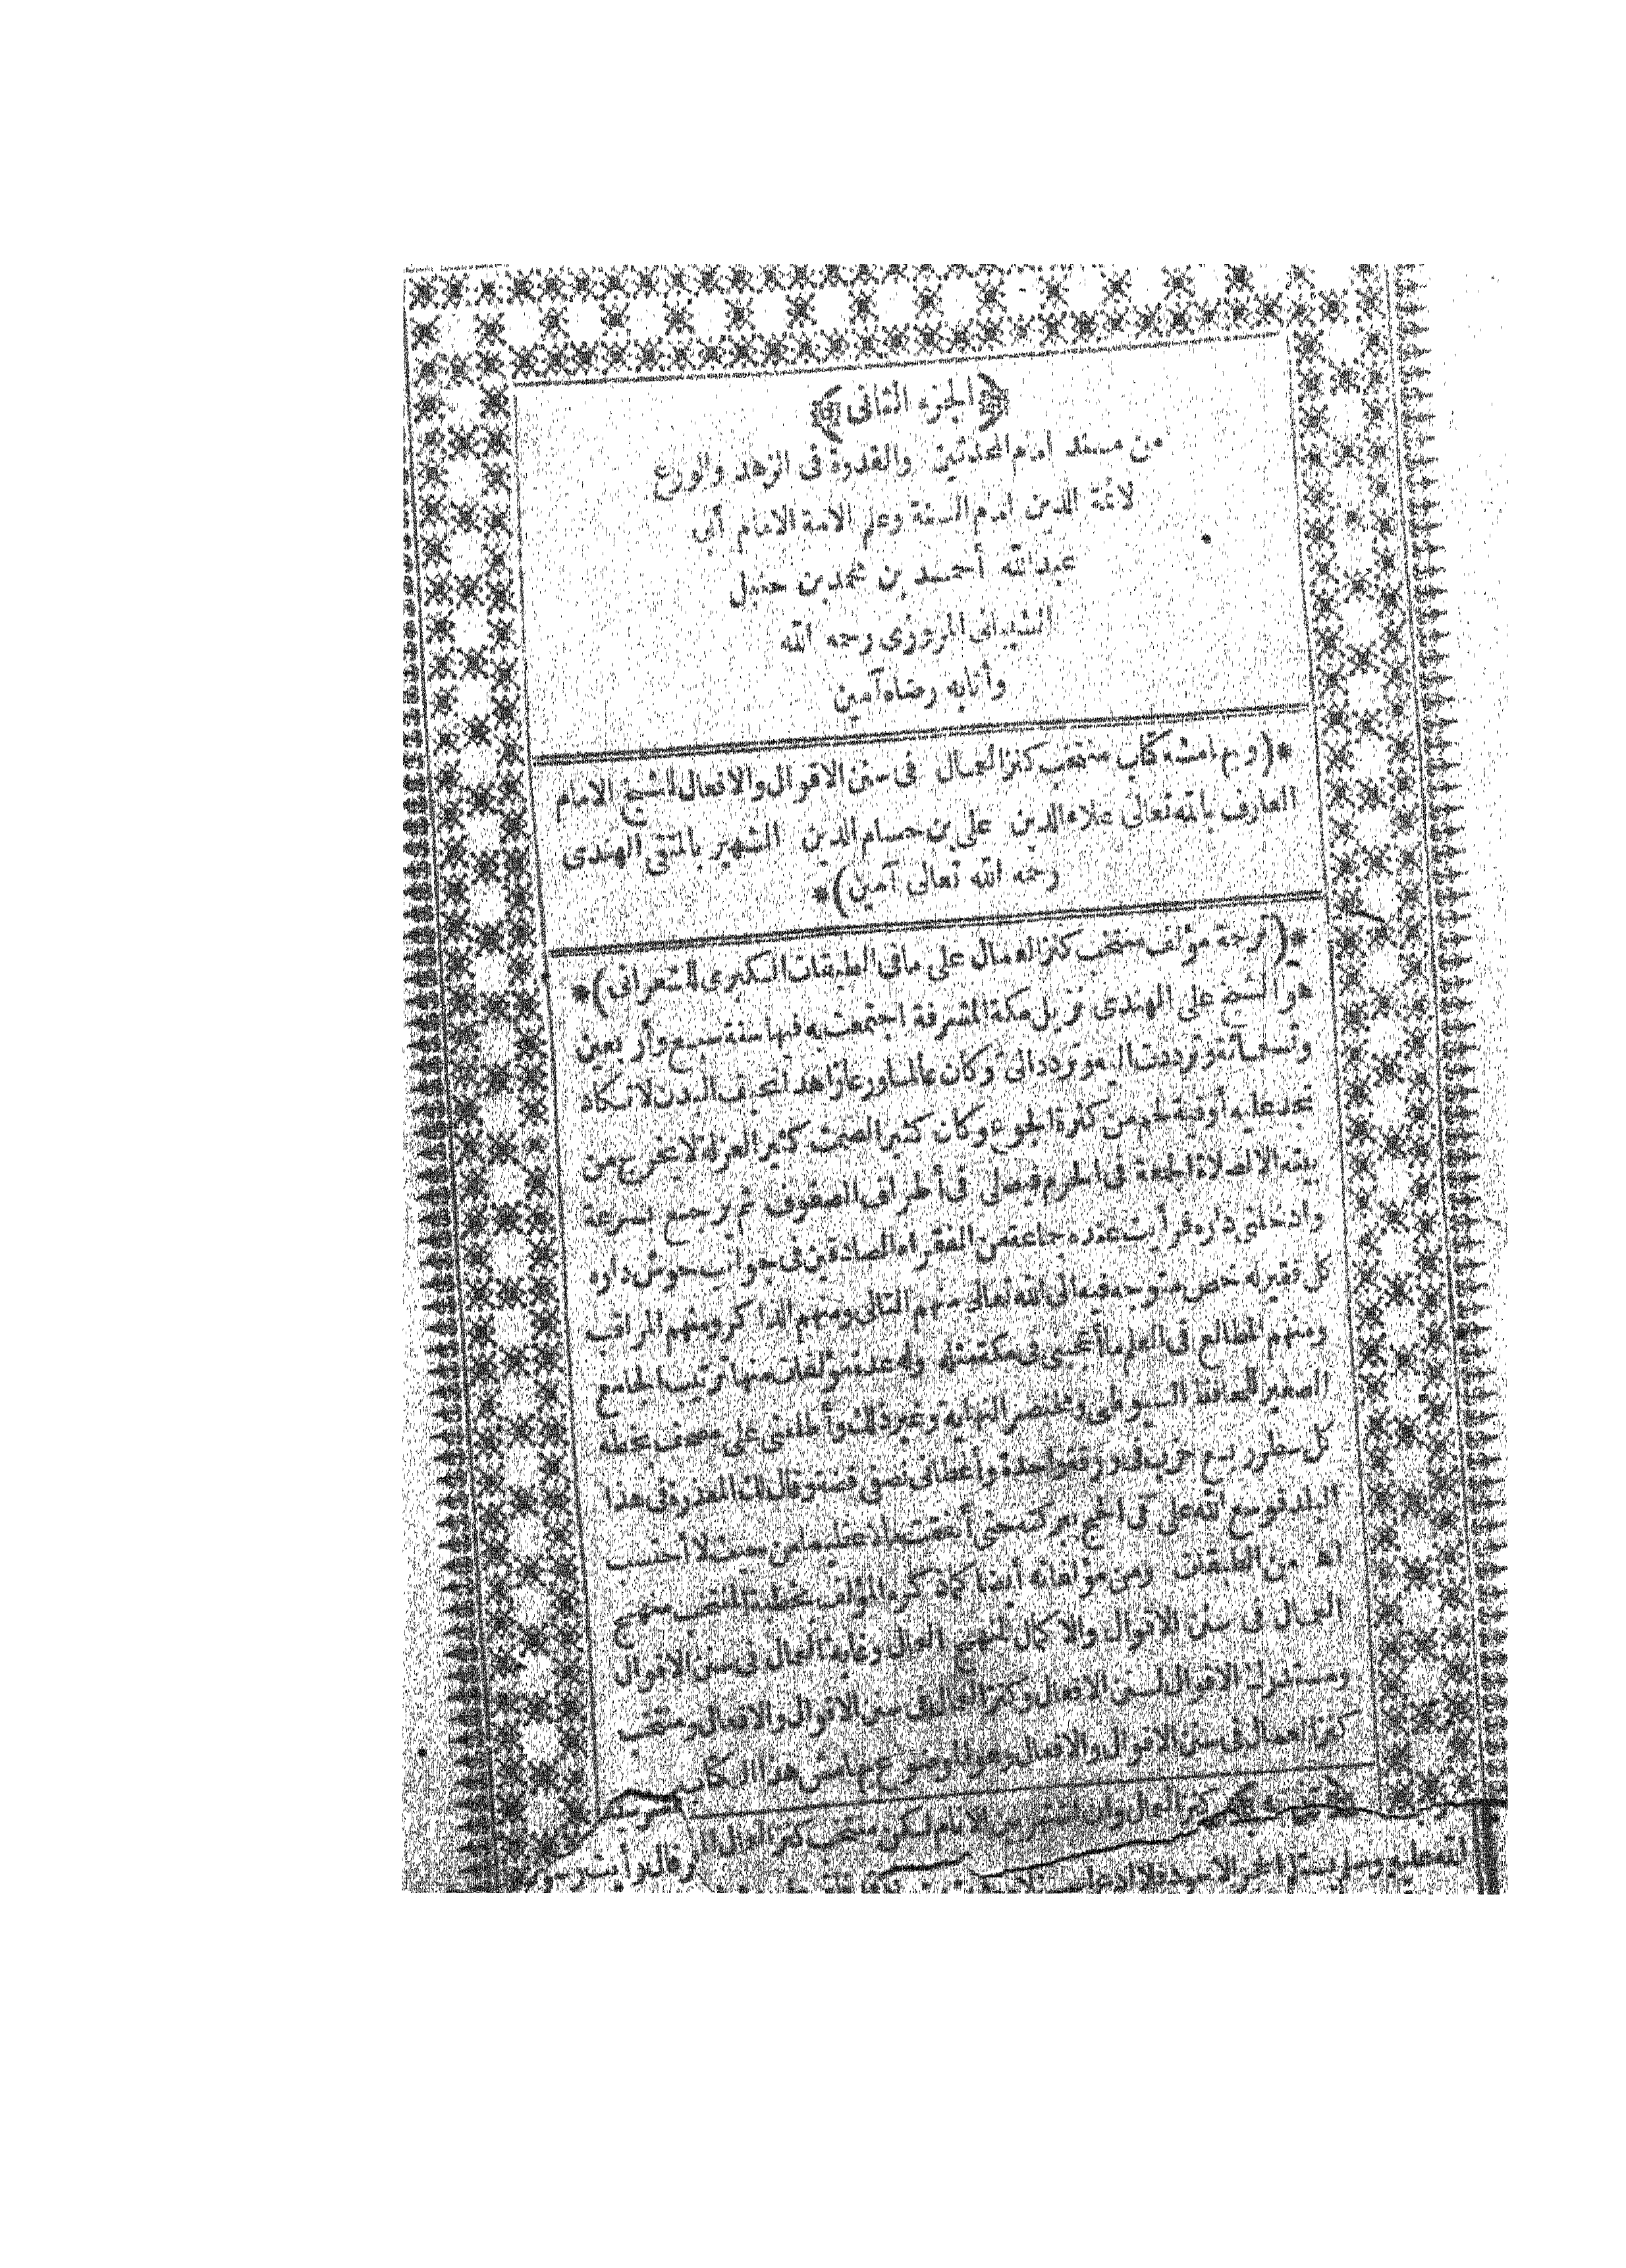 ﴿الجزء الثانى﴾
من مسند امام المحدثين والقدوة فى الزهد والورع
لائمة الدين امام السنة وعلم الامة الامام أبى
عبدالله أحمد بن محمد بن حنبل
الشيبانى المروزى رحمه الله
وأثابه رضاه آمين
*(وبهامشه كتاب منتخب كنز العمال فى سنن الاقوال والافعال للشيخ الامام
العارف بالله تعالى علاء الدين على بن حسام الدين الشهير بالمتقى الهندى
رحمه الله تعالى آمين)*
*(ترجمة مؤلف منتخب كنز العمال على ما فى الطبقات الكبرى للشعرانى)*
هو الشيخ على الهندى نزيل مكة المشرفة اجتمعت به فيها سنة سبع وأربعين
وتسعمائة وترددت اليه وتردد الىّ وكان عالما ورعا زاهدا نحيف البدن لا تكاد
تجد عليه أوقية لحم من كثرة الجوع وكان كثير الصمت كثير العزلة لا يخرج من
بيته الا لصلاة الجمعة فى الحرم فيصلى فى أطراف الصفوف ثم يرجع بسرعة
وأدخلنى داره فرأيت عنده جماعة من الفقراء الصادقين فى جوانب حوش داره
كل فقير له خص متوجه فيه الى الله تعالى منهم التالى ومنهم الذاكر ومنهم المراقب
ومنهم المطالع فى العلم ما أعجبنى فى مكة مثله وله عدة مؤلفات منها ترتيب الجامع
الصغير للحافظ السيوطى ومختصر النهاية وغير ذلك وأطلعنى على مصحف بخطه
كل سطر ربع حزب فى ورقة واحدة وأعطانى نصف فضة وقال لك المعذرة فى هذا
البلد فوسع الله على فى الحج ببركته حتى أنفقت مالا عظيما من حيث لا أحتسب
اه من الطبقات ومن مؤلفاته أيضا كما ذكره المؤلف بخطبة المنتخب منهج
العمال فى سنن الاقوال والاكمال لمنهج العمال وغاية العمال فى سنن الاقوال
ومستدرك الاقوال لسنن الافعال وكنز العمال فى سنن الاقوال والافعال ومنتخب
كنز العمال فى سنن الاقوال والافعال وهو الموضوع بهامش هذا الكتاب
كنز العمال وان لكن منتخب كنز العمال